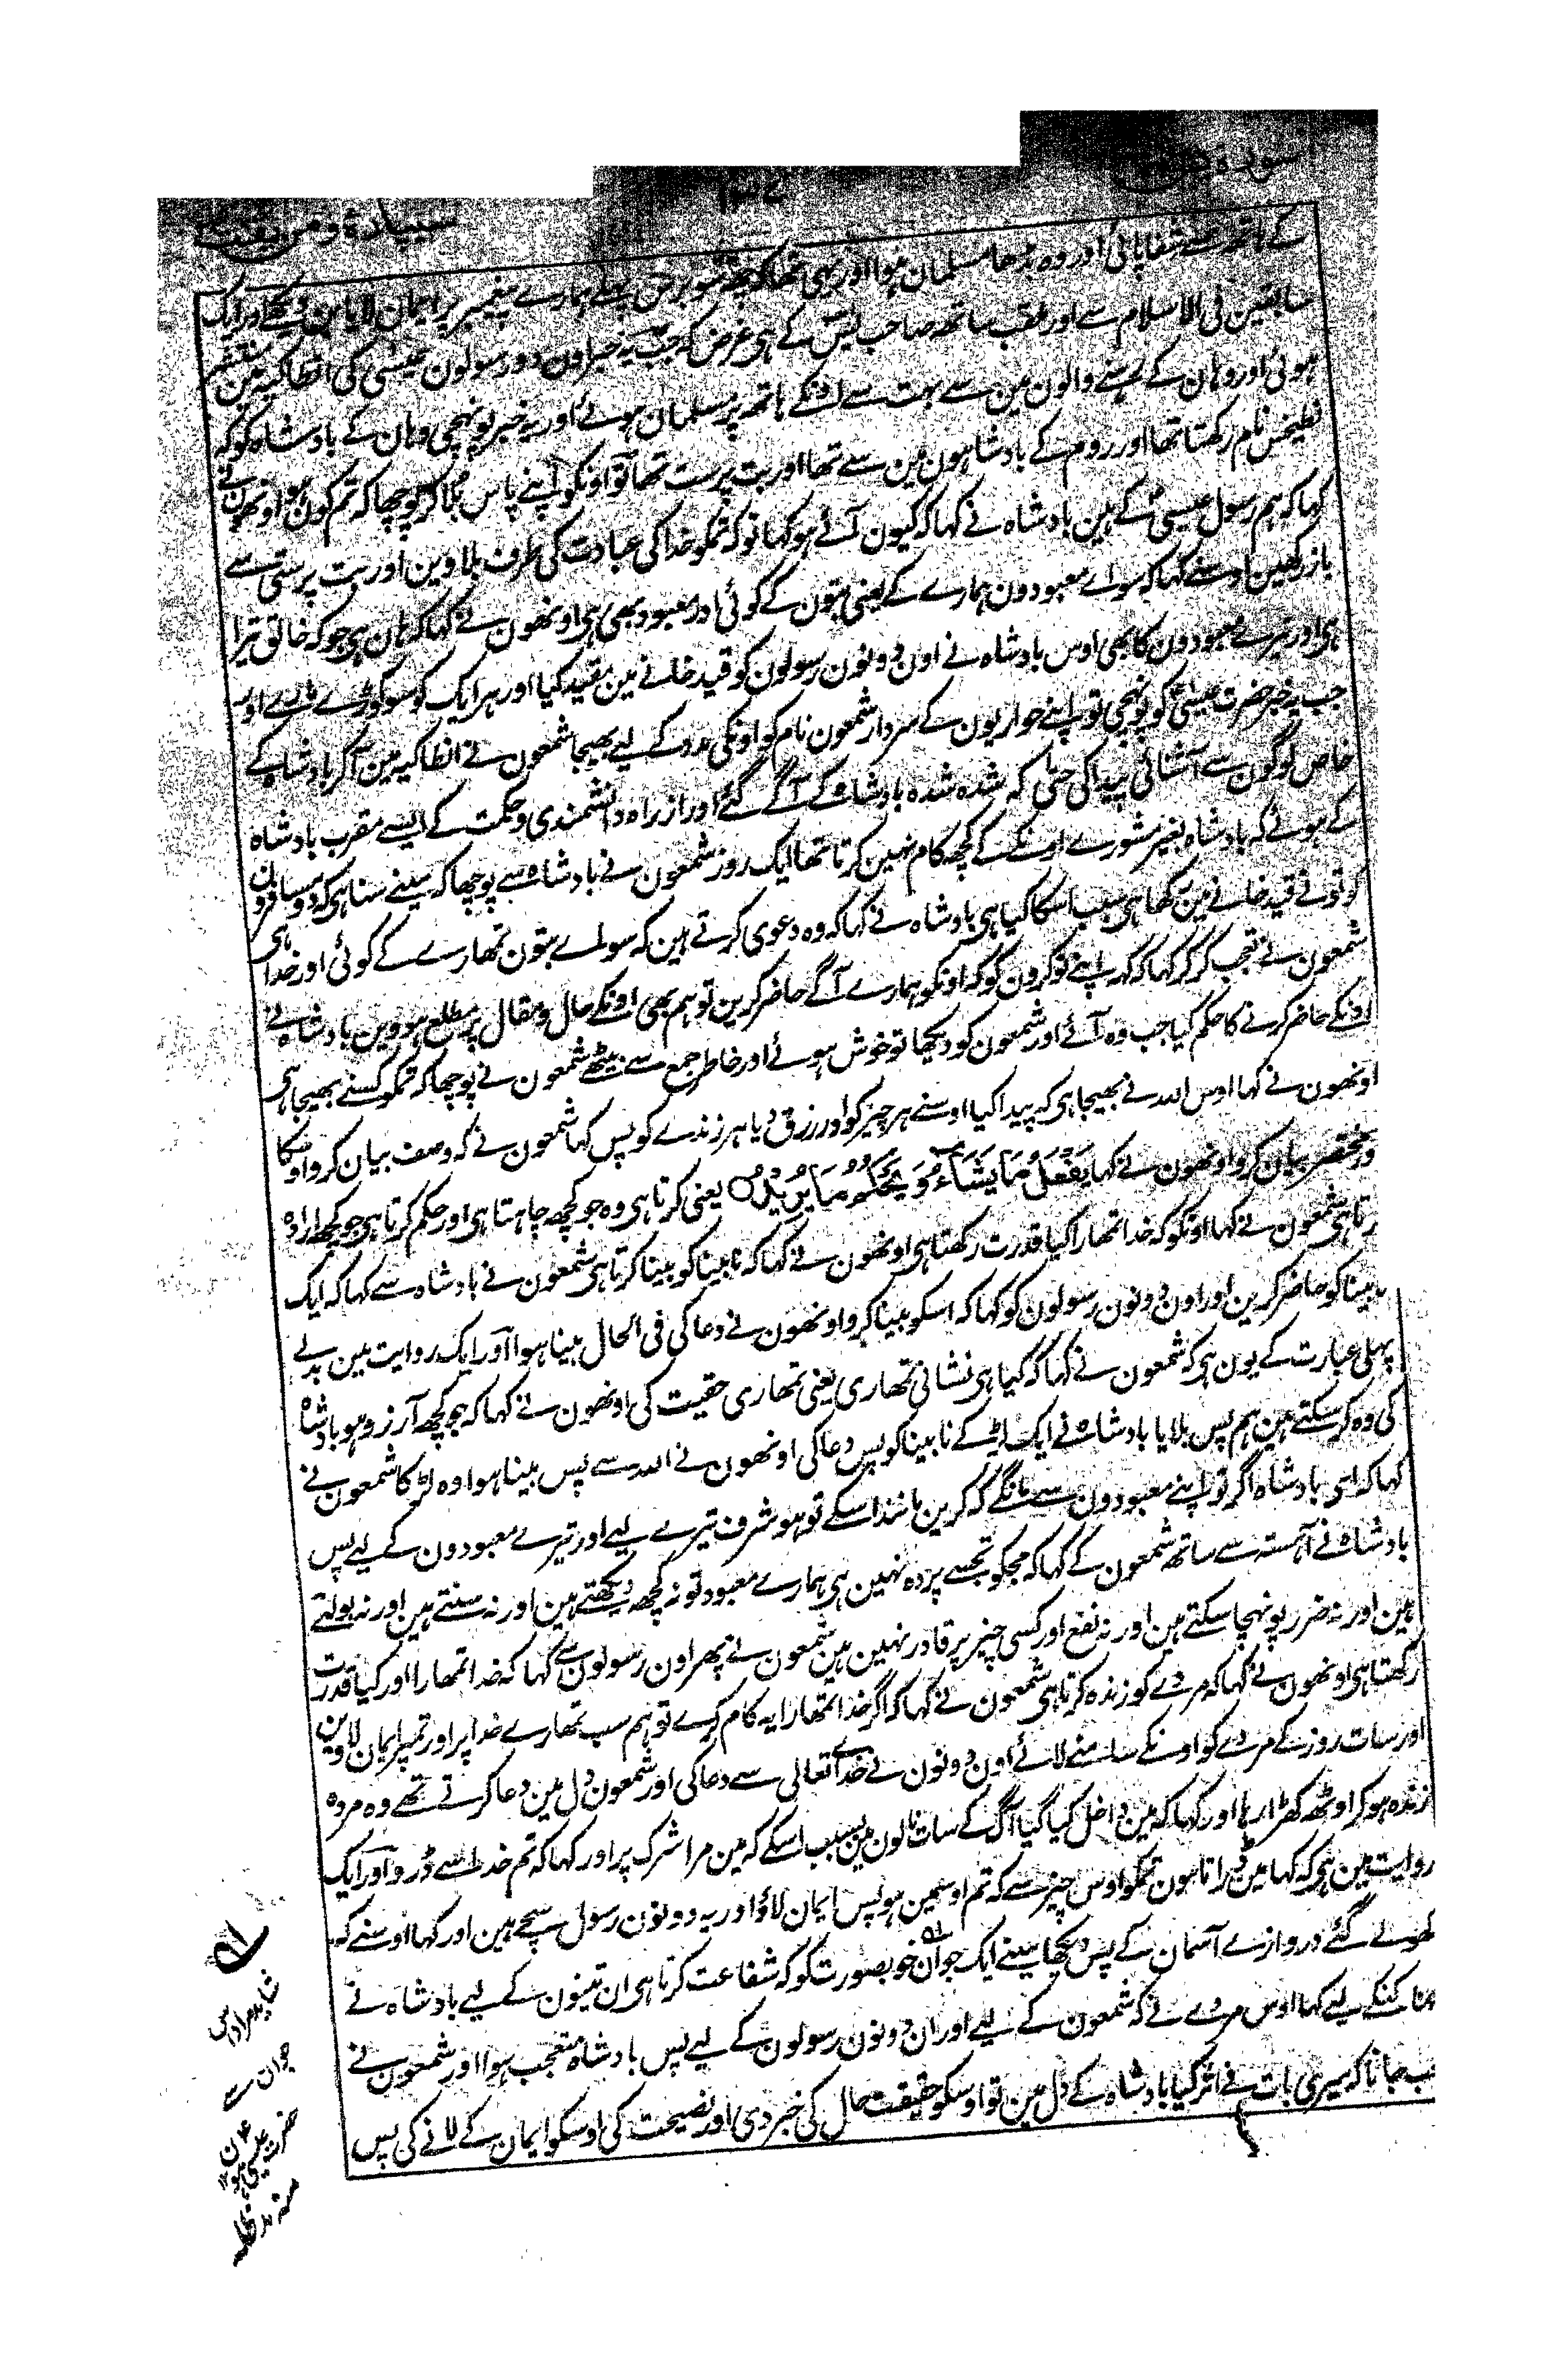 کے ہاتھ سے شفا پائی اور وہ بڈھا مسلمان ہوا اور یہی تھا کہ چھ سو برس پہلے ہمارے پیغمبر پر ایمان لایا
سابقین فی الاسلام سے اور ملقب ساتھ صاحب یٰس کے ہی غرض کہ جب یہ خبر اون دو رسولون عیسٰی کی انطاکیہ مین منتشر
ہوئی اور وہان کے بسنے والون مین سے بہت سے اونکے ہاتھ پر مسلمان ہوئے اور یہ خبر پونہچی وہان کے بادشاہ کو کہ
نطیخس نام رکھتا تھا اور روم کے بادشاہون مین سے تھا اور بت پرست تھا تو اونکو اپنے پاس بلا کر پوچھا کہ تم کون ہو اونھون نے
کہا کہ ہم رسول عیسیٰ کے ہین بادشاہ نے کہا کہ کیون آئے ہو کہا تو کہ تمکو خدا کی عبادت کی طرف بلاوین اور بت پرستی سے
باز رکھین اوسنے کہا کہ سواے معبودون ہمارے کے یعنی بتون کے کوئی اور معبود بھی ہی اونھون نے کہا کہ ہان ہی جو کہ خالق تیرا
ہی اور تیرے معبودون کا بھی اوس بادشاہ نے اون دونون رسولون کو قید خانے مین مقید کیا اور ہر ایک کو سو کوڑے مارے اور
جب یہ خبر حضرت عیسٰی کو پونہچی تو اپنے حواریون کے سردار شمعون نام کو اونکی مدد کے لیے بھیجا شمعون نے انطاکیہ مین آکر بادشاہ کے
خاص لوگون سے آشنائی پیدا کی حتٰی کہ شدہ شدہ بادشاہ کے آگے گئے اور از راہ دانشمندی و حکمت کے ایسے مقرب بادشاہ
کے ہوئے کہ بادشاہ بغیر مشورے اونکے کے کچھ کام نہین کرتا تھا ایک روز شمعون نے بادشاہ سے پوچھا کہ مینے سنا ہی کہ دو مسافرون
کو تونے قید خانے مین رکھا ہی سبب اسکا کیا ہی بادشاہ نے کہا کہ وہ دعوی کرتے ہین کہ سواے بتون تمھارے کے کوئی اور خدا ہی
شمعون نے تعجب کر کر کہا کہ کہہ اپنے نوکرون کو کہ اونکو ہمارے آگے حاضر کرین تو ہم بھی اونکے حال و مقال پر مطلع ہووین بادشاہ نے
اونکے حاضر کرنے کا حکم کیا جب وہ آئے اور شمعون کو دیکھا تو خوش ہوئے اور خاطر جمع سے بیٹھے شمعون نے پوچھا کہ تمکو کسنے بھیجا ہی
اونھون نے کہا اوس اللہ نے بھیجا ہی کہ پیدا کیا اوسنے ہر چیز کو اور رزق دیا ہر زندے کو پس کہا شمعون نے کہ وصف بیان کرو اوسکا
ور مختصر بیان کرو اونھون نے کہا یَفْعَلُ مَا یَشَآءُ وَ یَحْکُمُ مَا یُرِیْدُ یعنی کرتا ہی وہ جو کچھ چاہتا ہی اور حکم کرتا ہی جو کچھ ارادہ
رتا ہی شمعون نے کہا اونکو کہ خدا تمھارا کیا قدرت رکھتا ہی اونھون نے کہا کہ نابینا کو بینا کرتا ہی شمعون نے بادشاہ سے کہا کہ ایک
بینا کو حاضر کرین اور اون دونون رسولون کو کہا کہ اسکو بینا کرو اونھون نے دعا کی فی الحال بینا ہوا اور ایک روایت مین بدلے
پہلی عبارت کے یون ہی کہ شمعون نے کہا کہ کیا ہی نشانی تمھاری یعنی تمھاری حقیت کی اونھون نے کہا کہ جو کچھ آرزو ہو بادشاہ
کی وہ کر سکتے ہین ہم پس بلایا بادشاہ نے ایک لڑکے نابینا کو پس دعا کی اونھون نے اللہ سے پس بینا ہوا وہ لڑکا شمعون نے
کہا کہ ای بادشاہ اگر تو اپنے معبودون سے مانگے کہ کرین مانند اسکے تو ہو شرف تیرے لیے اور تیرے معبودون کے لیے پس
بادشاہ نے آہستہ سے ساتھ شمعون کے کہا کہ مجکو تجسے پردہ نہین ہی ہمارے معبود تو نہ کچھ دیکھتے ہین اور نہ سنتے ہین اور نہ بولتے
ہین اور نہ ضرر پونہچا سکتے ہین اور نہ نفع اور کسی چیز پر قادر نہین ہین شمعون نے پھر اون رسولون سے کہا کہ خدا تمھارا اور کیا قدرت
رکھتا ہی اونھون نے کہا کہ مردے کو زندہ کرتا ہی شمعون نے کہا کہ اگر خدا تمھارا یہ کام کرے تو ہم سب تمھارے خدا پر اور تمپر ایمان لاوین
اور سات روز کے مردے کو اونکے سامنے لائے اون دونون نے خداے تعالی سے دعا کی اور شمعون دل مین دعا کرتے تھے وہ مردہ
زندہ ہو کر اوٹھ کھڑا رہا اور کہا کہ مین داخل کیا گیا آگ کے سات نالون مین بسبب اسکے کہ مین مرا شرک پر اور کہا کہ تم خدا سے ڈرو اور ایک
روایت مین ہی کہ کہا مین ڈراتا ہون تمکو اوس چیز سے کہ تم اوسمین ہو پس ایمان لاؤ اور یہ دونون رسول سچے ہین اور کہا اوسنے کہ
کھولے گئے دروازے آسمان کے پس دیکھا مینے ایک جوان خوبصورت کو کہ شفاعت کرتا ہی ان تینون کے لیے بادشاہ نے
کہا کنکے لیے کہا اوس مردے نے کہ شمعون کے لیے اور ان دونون رسولون کے لیے پس بادشاہ متعجب ہوا اور شمعون نے
ب جانا کہ میری بات نے اثر کیا بادشاہ کے دل مین تو اوسکو حقیقت حال کی خبر دی اور نصیحت کی اوسکو ایمان کے لانے کی پس
شاید مراد اس
جوان سے